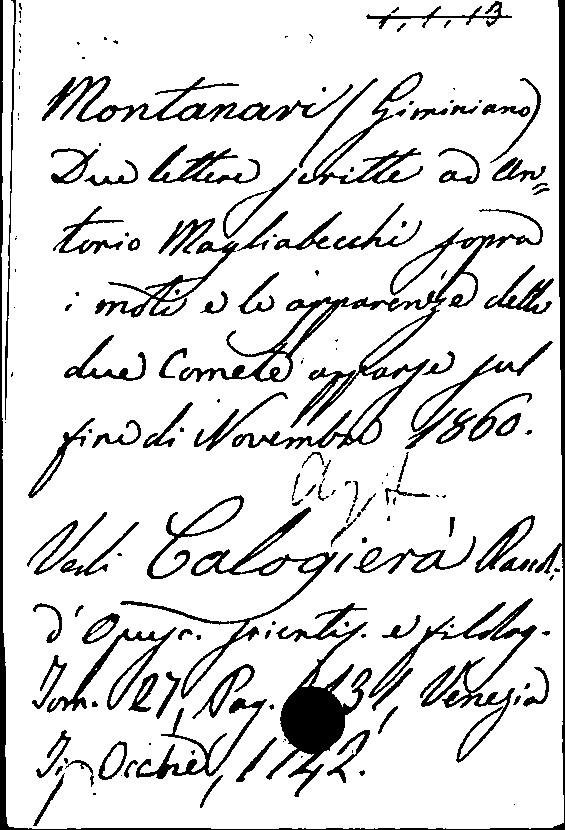 1,1,13
Montanari (Giminiano)
Due lettere scritte ad An=
tonio Magliabecchi sopra
i moti e le apparenze delle
due Comete apparse sul
fine di Novembre 1860.
Vedi Calogierà Raccol.
d'Opusc. scientif. e filolog.
Tom. 27, Pag. 131, Venezia
Tip Occhi, 1742.